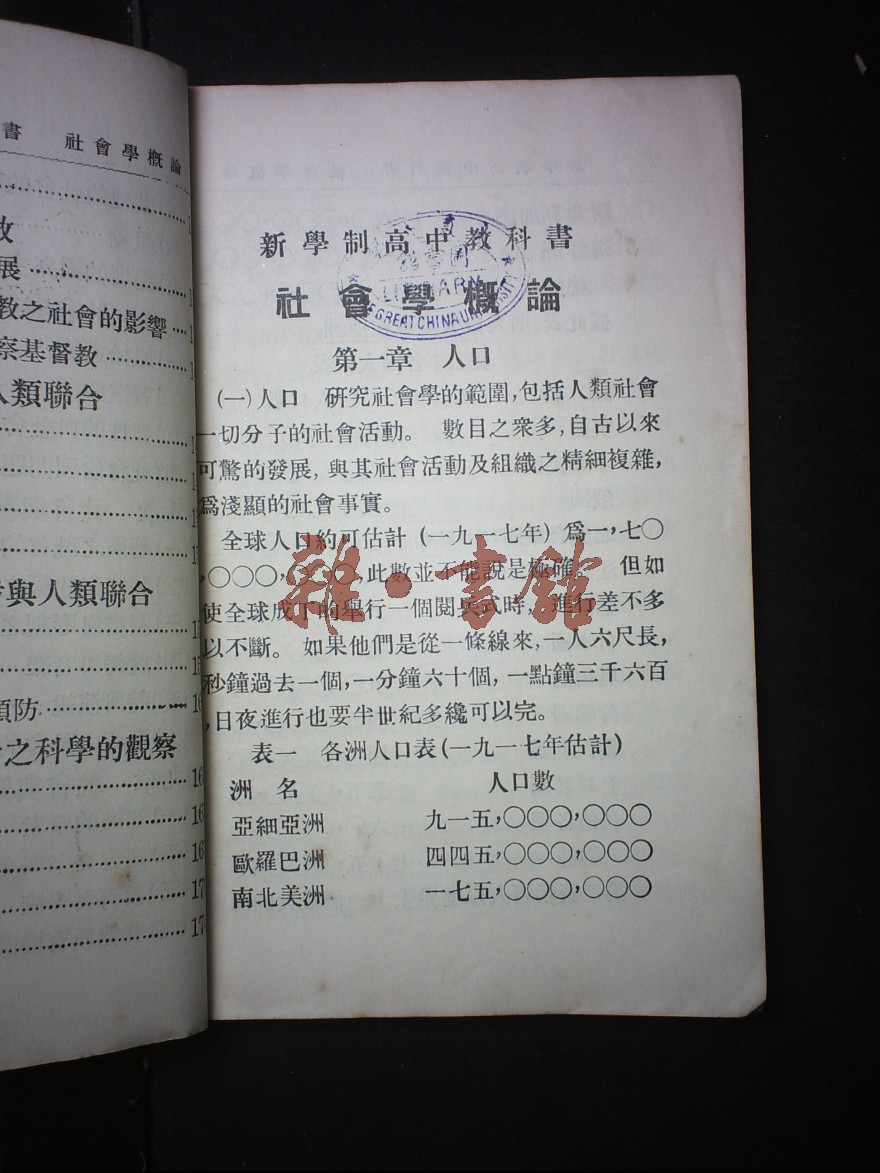 書 社會學概論
展
教之社會的影響
察基督教
人類聯合
與人類聯合
預防
之科學的觀察
新學制高中教科書
社會學概論
LIBRARY
GREAT CHINA UNIVERSITY
第一章 人口
(一)人口 研究社會學的範圍,包括人類社會
一切分子的社會活動。 數目之衆多,自古以來
可驚的發展,與其社會活動及組織之精細複雜,
爲淺顯的社會事實。
全球人口約可估計 (一九一七年) 爲一,七〇
,〇〇〇, 〇〇,此數並不能說是極確。 但如
使全球成丁的舉行一個閱兵式時, 進行差不多
以不斷。 如果他們是從一條線來,一人六尺長,
秒鐘過去一個,一分鐘六十個, 一點鐘三千六百
,日夜進行也要半世紀多纔可以完。
表一 各洲人口表(一九一七年估計)
洲 名 人口數
亞細亞洲 九一五,〇〇〇,〇〇〇
歐羅巴洲 四四五,〇〇〇,〇〇〇
南北美洲 一七五,〇〇〇,〇〇〇
雜·書館